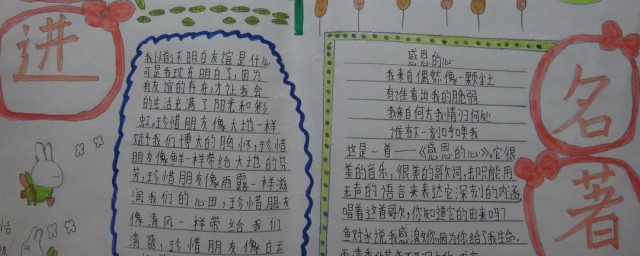 进
我以前不明白友谊是什么
可是我现在明白了,因为
有友谊的存在才让我会
的生活充满了阳光和彩
虹,珍惜朋友像大地一样
赋予我们博大的胸怀,珍惜
朋友像鲜一样带给大地的芬
芳,珍惜朋友像雨露一样滋
润我们的心田,珍惜朋友
像清风一样带给我们
清凉,珍惜朋友像白云
感恩的心
我来自偶然像一颗尘土
有谁看出我的脆弱
我来自何方我情归何处
谁在下一刻呼唤我
这是一首——《感恩的心》,它很
美的音乐,很美的歌词,却只能用
无声的语言来表达它深刻的内涵,
唱着这首歌,你知道它的由来吗?
鱼对水说我感激你,因为你给了我生命.
名
著